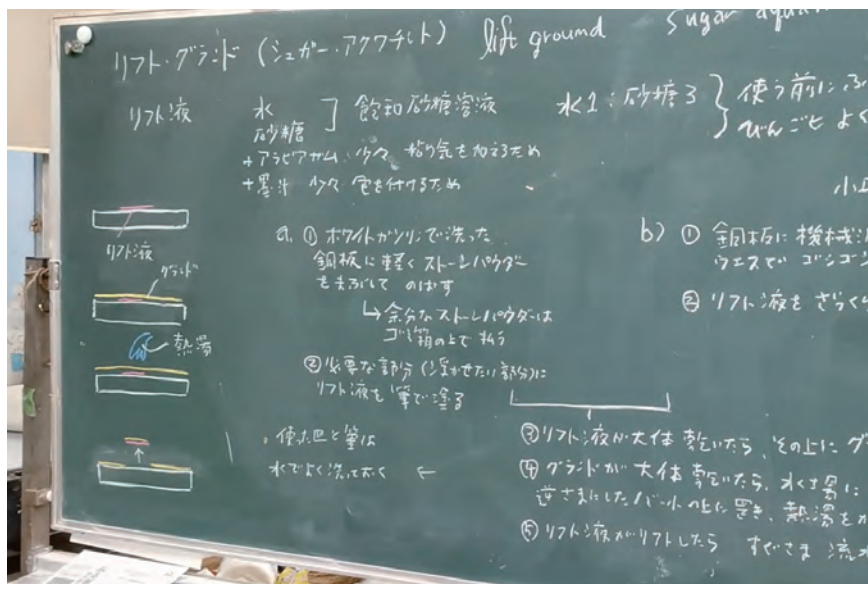 リフト・グランド (シュガー・アクワチント) lift ground sugar aqua
リフト液 水 砂糖 ] 飽和砂糖溶液 水1:砂糖3 } 使う前に びんごと よく
+アラビアガム 少々 粘り気を加えるため
+墨汁 少々 色を付けるため
リフト液
グランド
熱湯
a. ① ホワイトガソリンで洗った
銅板に軽くストーンパウダー
をまぶして のばす
↳ 余分なストーンパウダーは
ゴミ箱の上で払う
② 必要な部分 (浮かせたい部分)に
リフト液を筆で塗る
・使った皿と筆は
水でよく洗っておく ←
b) ① 銅板に機械
ウエスで ゴシゴシ
② リフト液を ざらく
③ リフト液が大体乾いたら、その上に
④ グランドが大体乾いたら、水くさ場に
逆さまにしたバットの上に置き、熱湯を
⑤ リフト液がリフトしたら すぐさま 流水